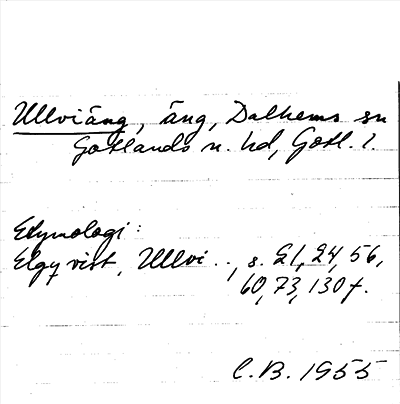 Ullviäng, äng, Dalhems sn
Gotlands n. hd, Gotl. l.
Etymologi:
Elgqvist, Ullvi.., s. 21, 24, 56,
60, 73, 130 f.
C.B. 1955